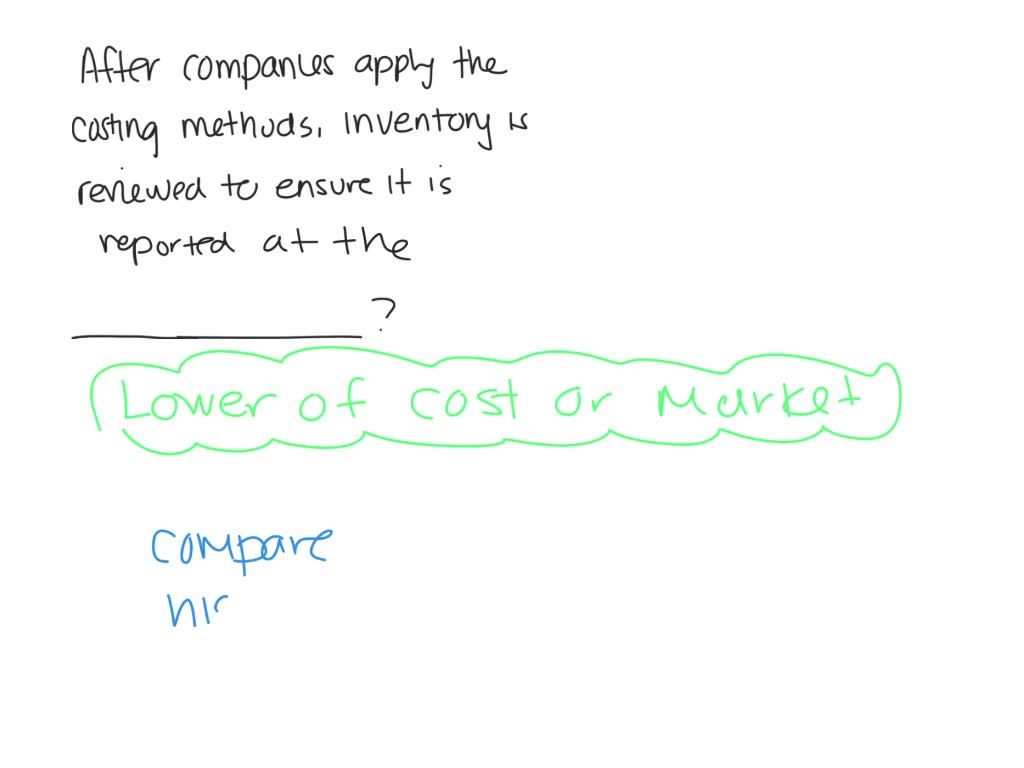 After companies apply the
costing methods, inventory is
reviewed to ensure it is
reported at the
?
Lower of cost or Market
compare